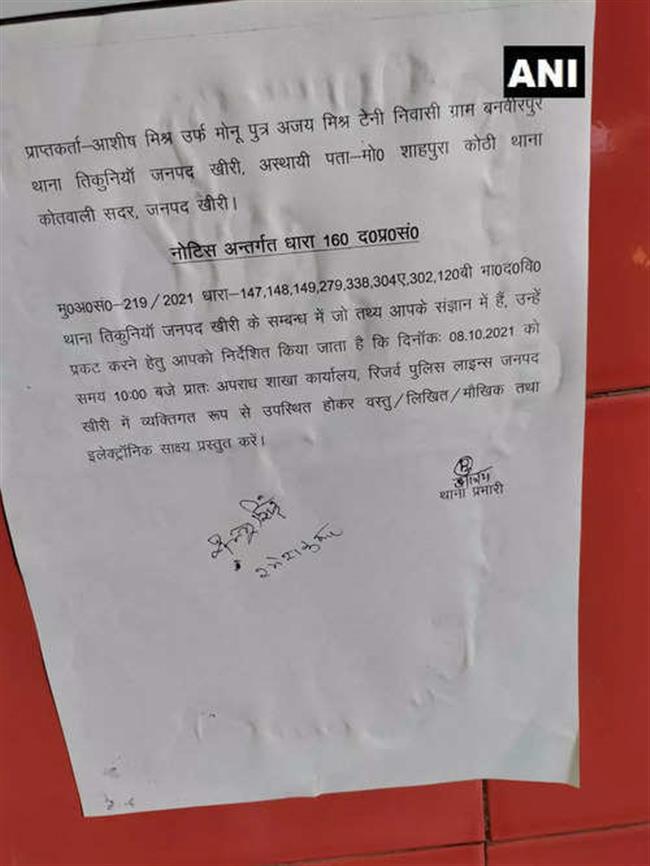 ANI
प्राप्तकर्ता–आशीष मिश्र उर्फ मोनू पुत्र अजय मिश्र टेनी निवासी ग्राम बनवीरपुर
थाना तिकुनियाँ जनपद खीरी, अस्थायी पता–मो0 शाहपुरा कोठी थाना
कोतवाली सदर, जनपद खीरी।
नोटिस अन्तर्गत धारा 160 द0प्र0सं0
मु0अ0सं0–219/2021 धारा–147,148,149,279,338,304ए,302,120बी भा0द0वि0
थाना तिकुनियाँ जनपद खीरी के सम्बन्ध में जो तथ्य आपके संज्ञान में हैं, उन्हें
प्रकट करने हेतु आपको निर्देशित किया जाता है कि दिनाँकः 08.10.2021 को
समय 10:00 बजे प्रातः अपराध शाखा कार्यालय, रिजर्व पुलिस लाइन्स जनपद
खीरी में व्यक्तिगत रूप से उपस्थित होकर वस्तु/लिखित/मौखिक तथा
इलेक्ट्रॉनिक साक्ष्य प्रस्तुत करें।
थाना प्रभारी